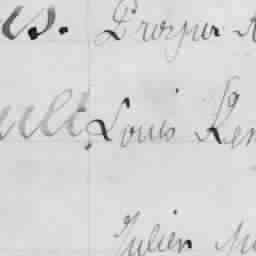 es. Prosper A
ult, Louis Ren
Julien